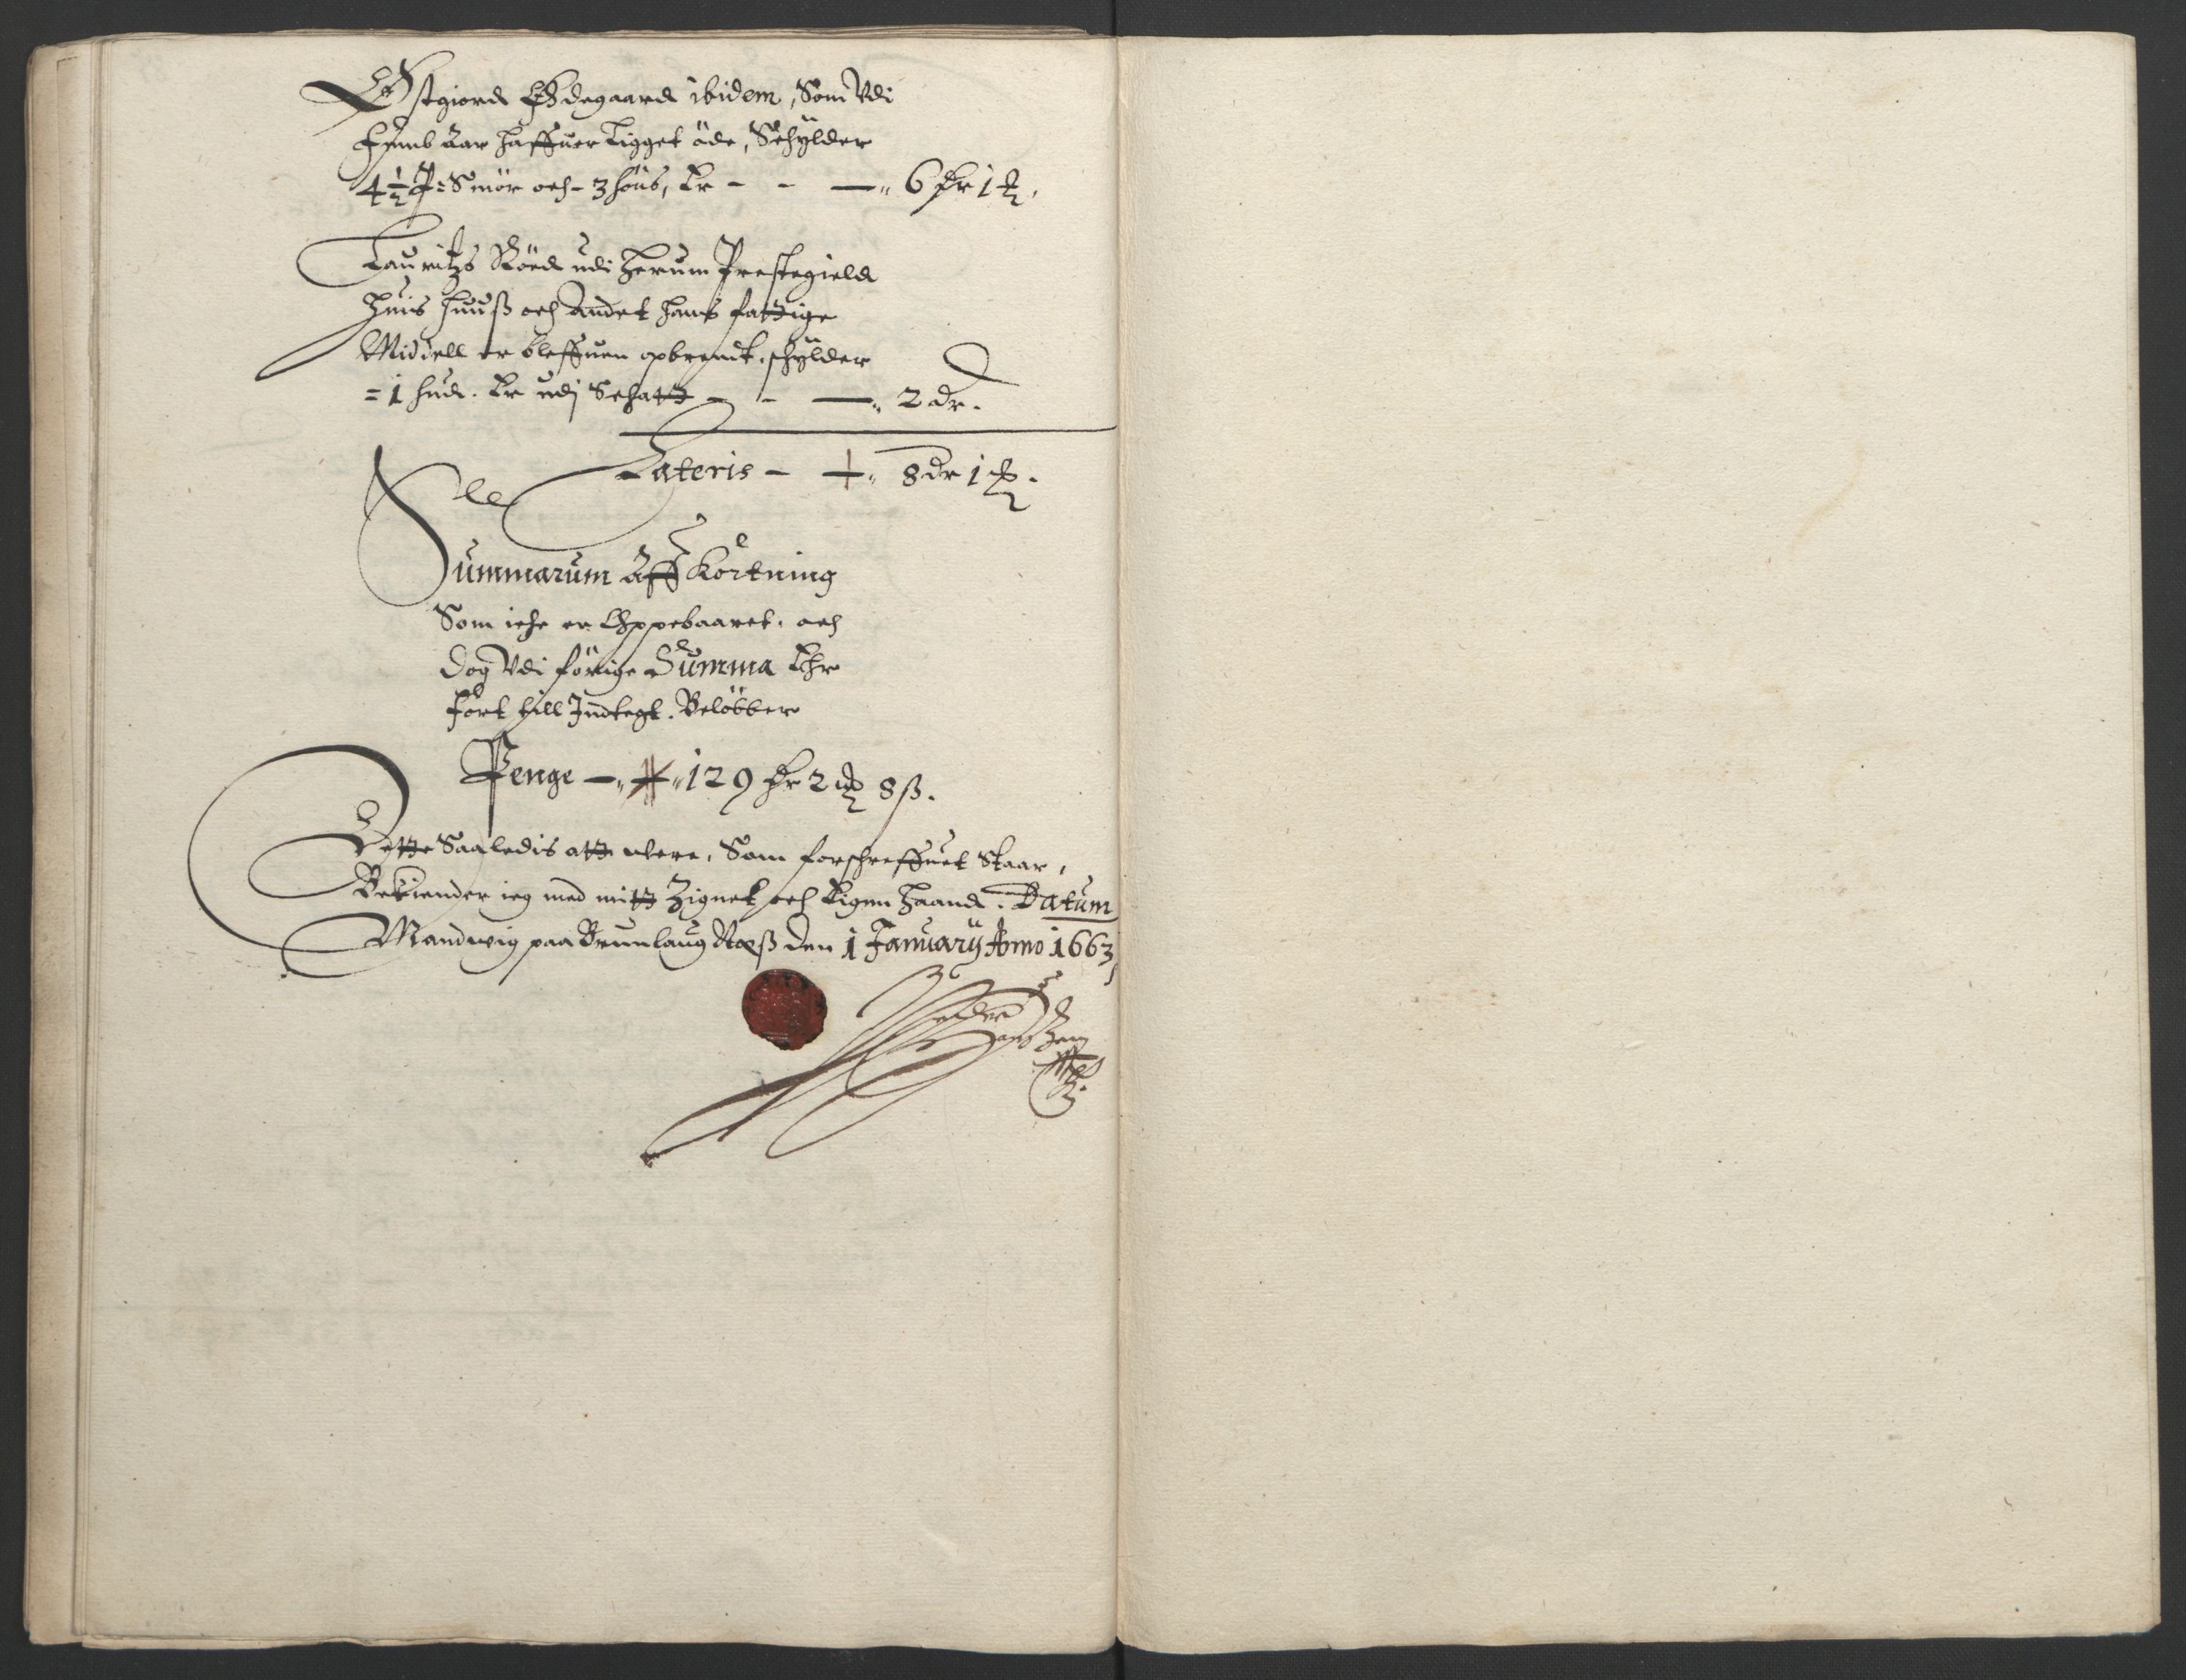 Østgiord Ødegaard ibidem, Som Vdi
Femb Aar haffuer Ligget øde, Schylder
4½ = Smör och - 3 höns, Er - - — 6 dr 1
Lauritzs Röed udi Herum Prestegield
huis huuß och Andet hans fattige
Middell er bleffuen opbrendt, schylder
= 1 hud. Er udj Schatt - - — 2 dr.
Lateris - — 8 dr 1
Summarum Aff Kortning
Som iche er Oppebaaret, och
dog Vdi förige Summa Ehr
fört till Indtegt. Belöbber
Penge — 129 dr 2 8 ß.
Dette Saaledis att were, Som forschreffuet Staar,
Bekiender ieg med mitt Zignet och Eigen Haand. Datum
Mandwig paa Brunlaug Næß den 1 January Anno 1663